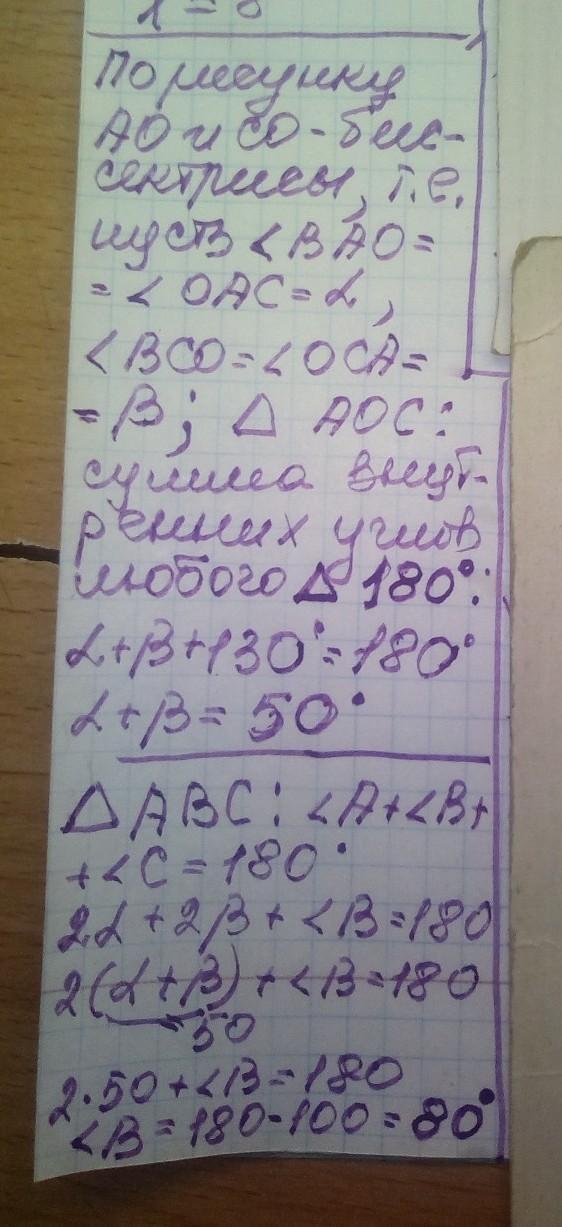 По рисунку
АО и СО - бис-
сектрисы, т.е.
пусть <BAO=
=< OAC=α,
<BCO=<OCA=
=β; Δ AOC:
сумма внут-
ренних углов
любого Δ 180°:
α+β+130°=180°
α+β= 50°
ΔABC: <A+<B+
+<C=180°
2α+2β+<B=180
2(α+β)+<B=180
=50
2·50+<B=180
<B=180-100=80°